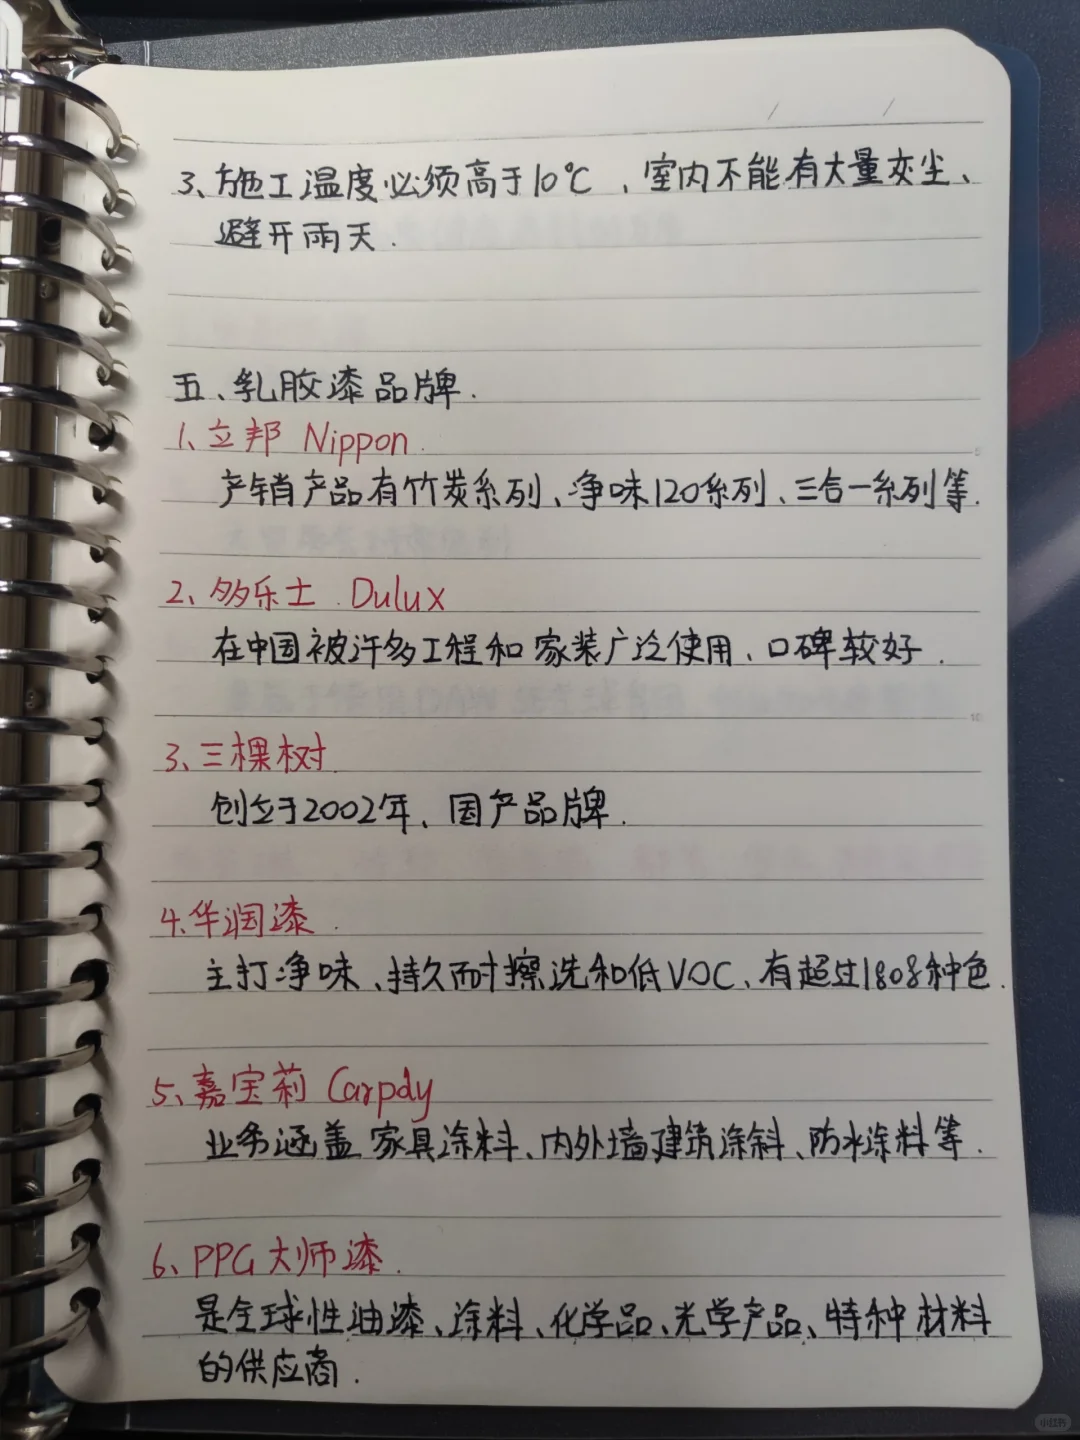 3、施工温度必须高于10℃、室内不能有大量灰尘、
避开雨天.
五、乳胶漆品牌.
1、立邦 Nippon.
产销产品有竹炭系列、净味120系列、三合一系列等.
2、多乐士. Dulux
在中国被许多工程和家装广泛使用、口碑较好.
3、三棵树.
创立于2002年、国产品牌.
4、华润漆.
主打净味、持久耐擦洗和低VOC、有超过1808种色.
5、嘉宝莉 Carpoly
业务涵盖家具涂料、内外墙建筑涂料、防水涂料等.
6、PPG大师漆.
是全球性油漆、涂料、化学品、光学产品、特种材料
的供应商.
小红书